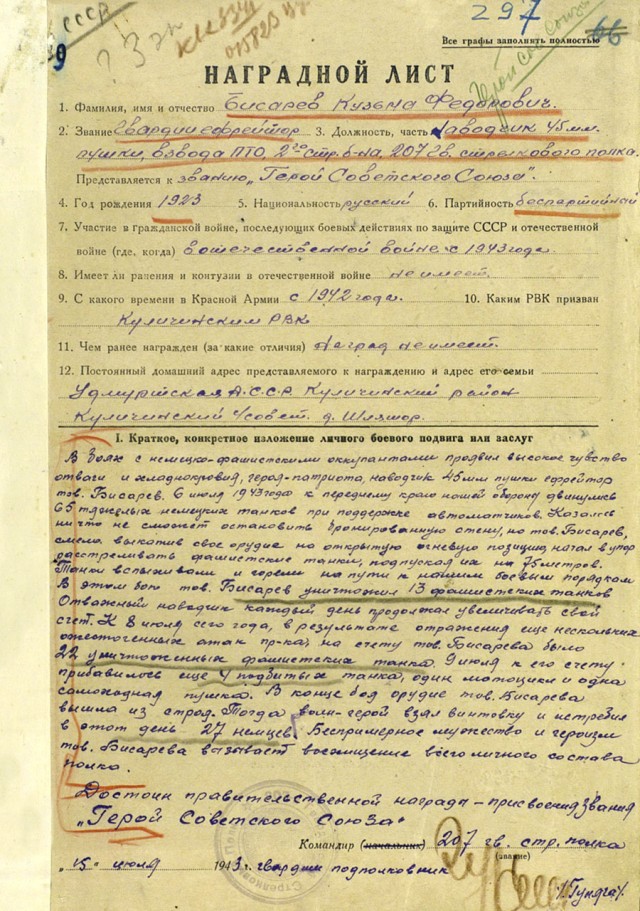 СССР
9
? 3 эк
297
66
Все графы заполнять полностью
Герой Сов. Союза
НАГРАДНОЙ ЛИСТ
1. Фамилия, имя и отчество Бисарев Кузьма Федорович.
2. Звание Гвардии ефрейтор 3. Должность, часть наводчик 45 мм.
пушки, взвода ПТО, 2го стр. б-на, 207 гв. стрелкового полка.
Представляется к званию „Герой Советского Союза".
4. Год рождения 1923 5. Национальность русский 6. Партийность беспартийный
7. Участие в гражданской войне, последующих боевых действиях по защите СССР и отечественной
войне (где, когда) в отечественной войне с 1943 года.
8. Имеет ли ранения и контузии в отечественной войне не имеет.
9. С какого времени в Красной Армии с 1942 года. 10. Каким РВК призван
Куличинским РВК
11. Чем ранее награжден (за какие отличия) Наград не имеет.
12. Постоянный домашний адрес представляемого к награждению и адрес его семьи
Удмуртская А.С.С.Р. Куличинский район
Куличинский с/совет. д. Шляпшор.
I. Краткое, конкретное изложение личного боевого подвига или заслуг
В боях с немецко-фашистскими оккупантами проявил высокое чувство
отваги и хладнокровия, героя-патриота, наводчик 45 мм пушки ефрейтор
тов. Бисарев. 6 июля 1943 года к переднему краю нашей обороны двинулись
65 тяжелых немецких танков при поддержке автоматчиков. Казалось
ничто не сможет остановить бронированную стену, но тов. Бисарев,
смело выкатив свое орудие на открытую огневую позицию, начал в упор
расстреливать фашистские танки, подпуская их на 75 метров.
Танки вспыхивали и горели на пути к нашим боевым порядкам
В этом бою тов. Бисарев уничтожил 13 фашистских танков
Отважный наводчик каждый день продолжал увеличивать свой
счет. К 8 июля сего года, в результате отражения еще нескольких
ожесточенных атак пр-ка, на счету тов. Бисарева было
22 уничтоженных фашистских танка. 9 июля к его счету
прибавилось еще 4 подбитых танка, один мотоцикл и одна
самоходная пушка. В конце боя орудие тов. Бисарева
вышло из строя. Тогда воин-герой взял винтовку и истребил
в этот день 27 немцев. Беспримерное мужество и героизм
тов. Бисарева вызывает восхищение всего личного состава
полка.
Достоин правительственной награды – присвоения звания
„Герой Советского Союза"
Командир (начальник) 207 гв. стр. полка
(звание)
„15" июля 1943 г. гвардии подполковник